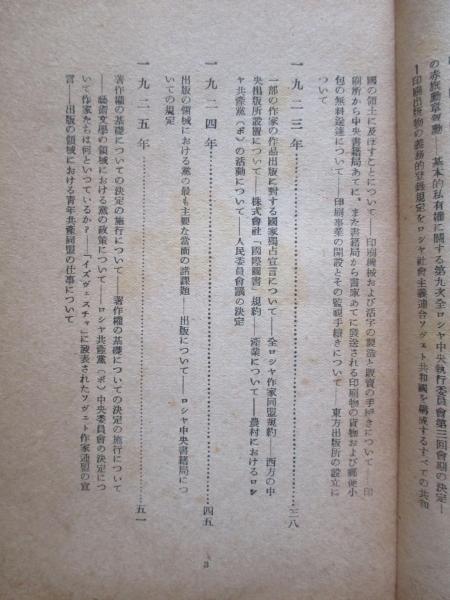 の赤旗勳章叙勳——基本的私有權に關する第九次全ロシャ中央執行委員會第三回會期の決定——
印刷出版物の義務的登録規定をロシャ社會主義連合ソヴェト共和國を構成するすべての共和
國の領土に及ぼすことについて——印刷機械および活字の製造と販賣の手續きについて——印
刷所から中央書籍局あてに、また書籍局から書家あてに發送される印刷物の貨物および郵便小
包の無料送達について——印刷事業の開設とその監視手續きについて——東方出版所の設立に
ついて
一九二三年……三八
一部の作家の作品出版に對する國家獨占宣言について——全ロシヤ作家同盟規約——西方の中
央出版所設置について——株式會社「國際圖書」規約——產業について——農村におけるロシ
ヤ共產黨（ボ）の活動について——人民委員會議の決定
一九二四年……四五
出版の領域における黨の最も主要な當面の諸課題——出版について——ロシヤ中央書籍局につ
いての規定
一九二五年……五一
著作權の基礎についての決定の施行について——著作權の基礎についての決定の施行について
——藝術文學の領域における黨の政策について——ロシヤ共產黨（ボ）中央委員會の決定につ
いて作家たちは何といつているか？——「イズヴェスチャ」に發表されたソヴェト作家連盟の宣
言——出版の領域における青年共產同盟の仕事について
3